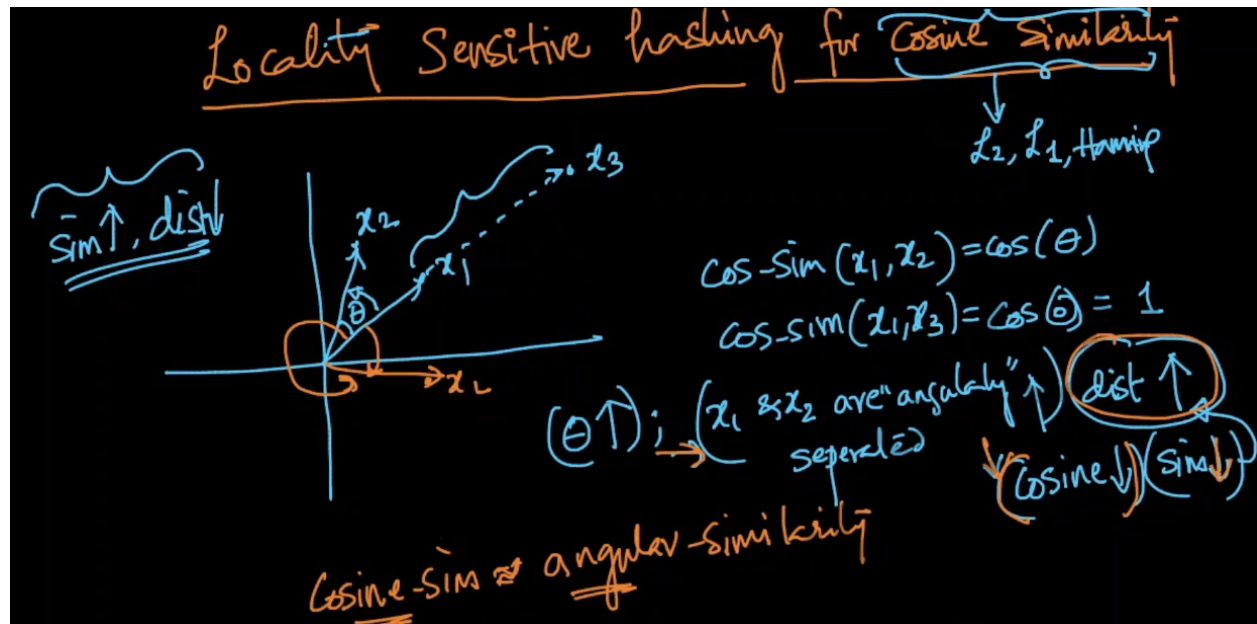 Locality Sensitive hashing for Cosine Similarity
L2, L1, Hamming
sim↑, dist↓
x3
x2
x1
θ
x2
cos-sim(x1, x2) = cos(θ)
cos-sim(x1, x3) = cos(0) = 1
(θ↑); → (x1 & x2 are "angularly" ↑) dist ↑
seperated
(Cosine↓)(sim↓)
Cosine-sim ≈ angular-similarity